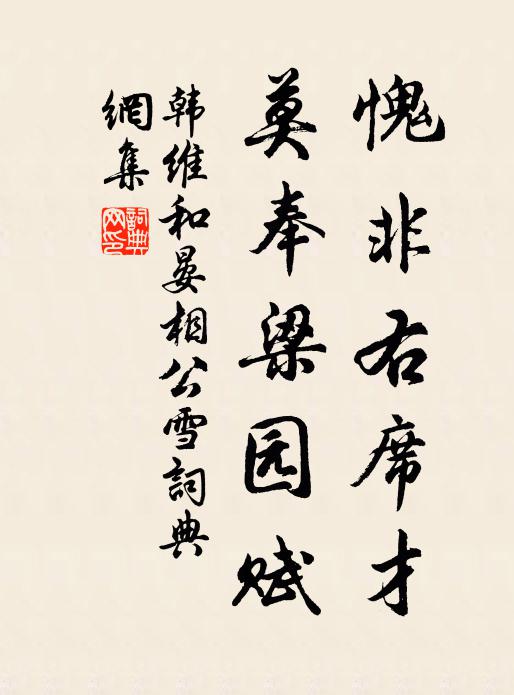 愧非右席才
莫奉梁园赋
韩维和晏相公雪詞典
網集
詞典網印